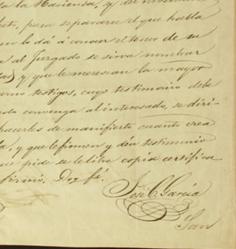 la Hacienda, y de
para separarse el que habla
le dá á conocer el tenor de su
al juzgado se sirva nombrar
y que le merescan la mayor
como testigos, cuyo testimonio debe
convenga al interesado, se
hacerles de manifiesto cuanto crea
y que lo firmen y den testimonio
pide se le libre copia certifica
firmó. Doy fé.
José C. Garcia